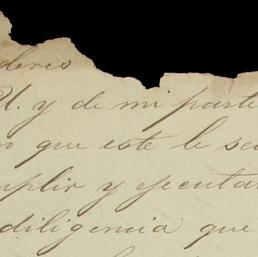 deres
U. y de mi parte
que este le sea
mplir y ejecutar
diligencia que